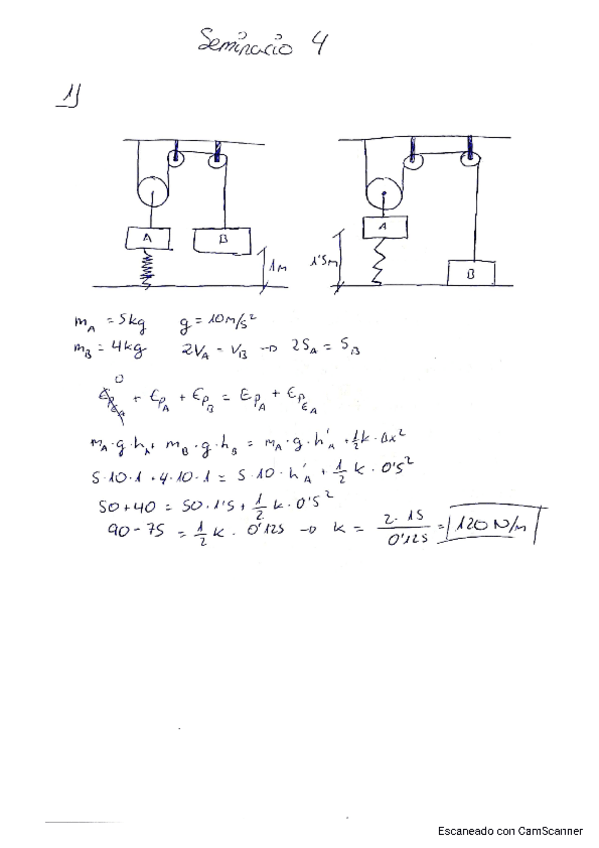 Seminario 4
1)
A
B
1m
1'5m
A
B
m_A = 5kg g = 10m/s²
m_B = 4kg 2V_A = V_B → 2S_A = S_B
0
E_p_EA + E_p_A + E_p_B = E_p_A + E_p_EA
m_A · g · h_A + m_B · g · h_B = m_A · g · h'_A + 1/2 k · Δx²
5 · 10 · 1 + 4 · 10 · 1 = 5 · 10 · h'_A + 1/2 k · 0'5²
50 + 40 = 50 · 1'5 + 1/2 k · 0'5²
90 - 75 = 1/2 k · 0'125 → k = 2 · 15 / 0'125 = 120 N/m
Escaneado con CamScanner